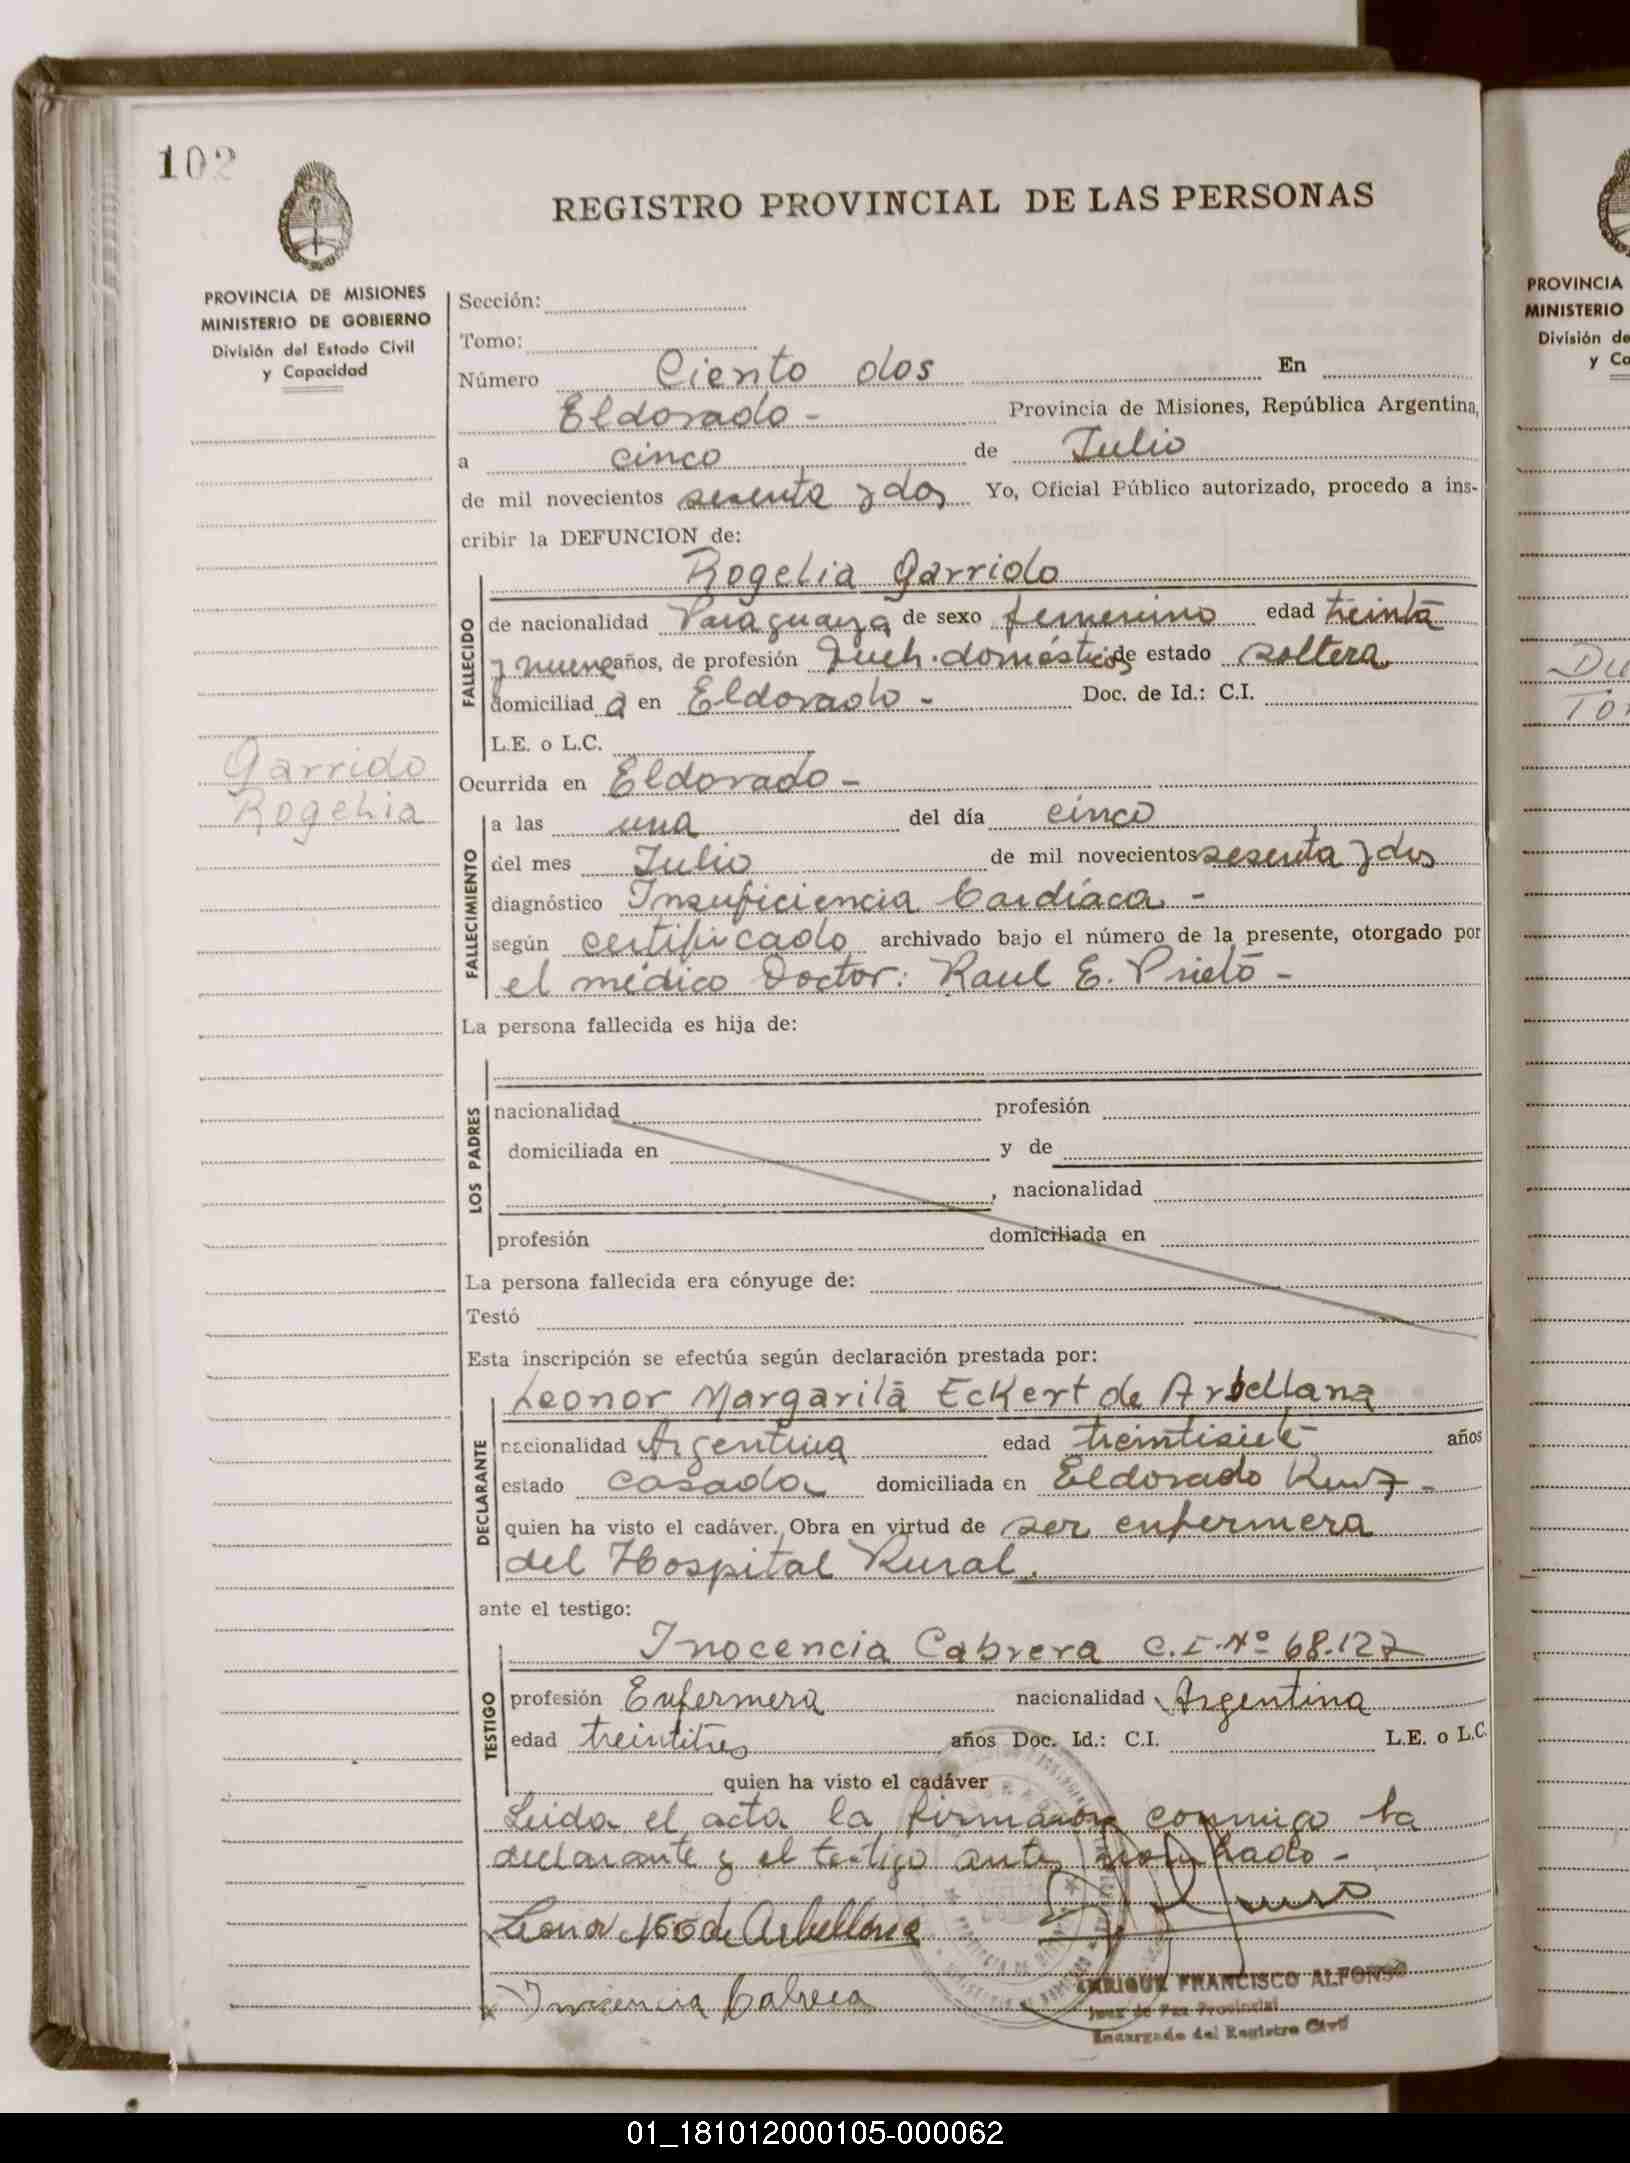 102
REGISTRO PROVINCIAL DE LAS PERSONAS
PROVINCIA DE MISIONES
MINISTERIO DE GOBIERNO
División del Estado Civil
y Capacidad
Sección:
Tomo:
Número Ciento dos En
Eldorado - Provincia de Misiones, República Argentina,
a cinco de Julio
de mil novecientos sesenta y dos Yo, Oficial Público autorizado, procedo a ins-
cribir la DEFUNCION de:
FALLECIDO
Rogelia Garrido
de nacionalidad Paraguaya de sexo femenino edad treinta
y nueve años, de profesión Queh. domésticos de estado soltera
domiciliad a en Eldorado - Doc. de Id.: C.I.
L.E. o L.C.
Garrido
Rogelia
Ocurrida en Eldorado -
FALLECIMIENTO
a las una del día cinco
del mes Julio de mil novecientos sesenta y dos
diagnóstico Insuficiencia Cardíaca -
según certificado archivado bajo el número de la presente, otorgado por
el médico Doctor: Raul E. Prieto -
La persona fallecida es hija de:
LOS PADRES
nacionalidad profesión
domiciliada en y de
, nacionalidad
profesión domiciliada en
La persona fallecida era cónyuge de:
Testó
Esta inscripción se efectúa según declaración prestada por:
DECLARANTE
Leonor Margarita Eckert de Arbellana
nacionalidad Argentina edad treintisiete años
estado casada domiciliada en Eldorado
quien ha visto el cadáver. Obra en virtud de ser enfermera
del Hospital Rural.
ante el testigo:
TESTIGO
Inocencia Cabrera C.I. Nº 68.127
profesión Enfermera nacionalidad Argentina
edad treintitres años Doc. Id.: C.I. L.E. o L.C.
quien ha visto el cadáver
Leida el acta la firmaron conmigo la
declarante y el testigo antes nombrado -
Leonor de Arbellana
Inocencia Cabrera
ENRIQUE FRANCISCO ALFONSO
Juez de Paz Provincial
Encargado del Registro Civil
PROVINCIA
MINISTERIO
División de
y Ca
01_181012000105-000062